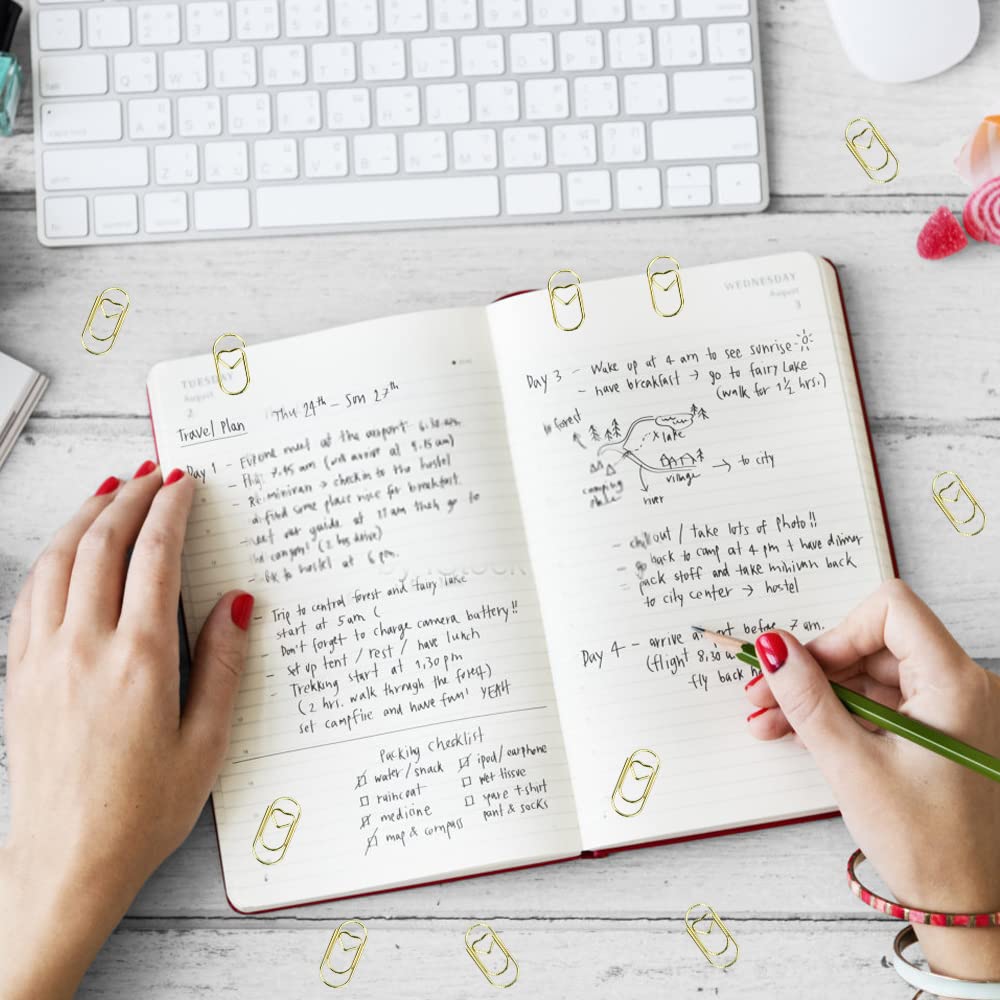 TUESDAY
August
2
Thu 24th - Sun 27th
Travel Plan
Day 1 - meet at the airport 6.30 am
7.45 am (will arrive at 9.15 am)
minivan → check in to the hostel
find some place nice for breakfast
our guide at 11 am then go to
(2 hrs drive)
to hostel at 6 pm.
- Trip to central forest and fairy lake
start at 5 am (
- Don't forget to charge camera battery!!
- set up tent / rest / have lunch
- Trekking start at 1.30 pm
(2 hrs. walk through the forest)
set campfire and have fun! YEAH
Packing Checklist
water / snack
raincoat
medicine
map & compass
ipod / earphone
wet tissue
spare t-shirt
pant & socks
WEDNESDAY
August
3
Day 3 - Wake up at 4 am to see sunrise
- have breakfast → go to fairy Lake
(walk for 1½ hrs.)
to forest
x lake
→ to city
village
camping
place
river
- chill out / take lots of photo!!
- go back to camp at 4 pm + have dinner
- pack stuff and take minivan back
to city center → hostel
Day 4 - arrive before 7 am.
(flight 8.30
fly back